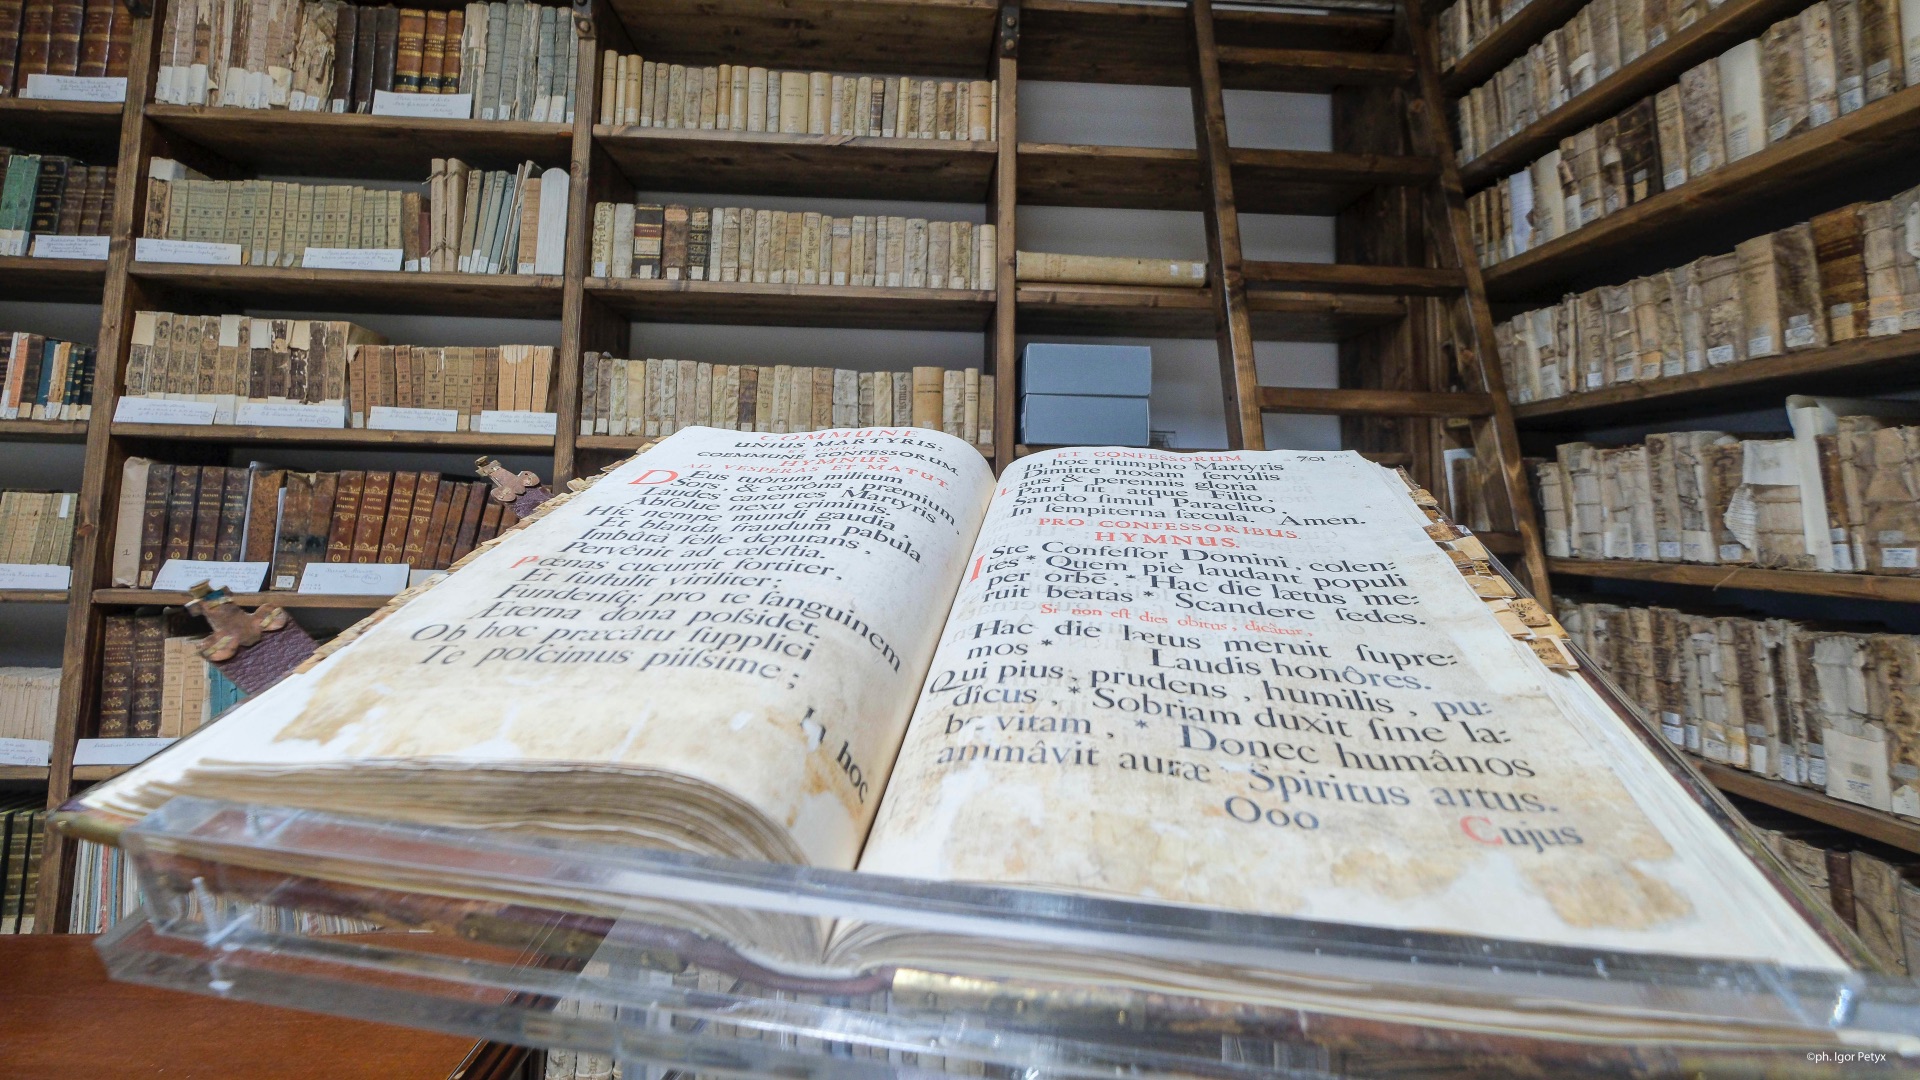 COMMUNE
UNIUS MARTYRIS:
COEMMUNE CONFESSORUM.
HYMNUS
AD VESPERAS ET MATUT.
DEus tuôrum militum
Sors, & corôna, præmium,
Laudes canentes Martyris
Absolve nexu criminis.
Hîc nempe mundi gaudia,
Et blanda fraudum pabula
Imbûta felle deputans,
Pervênit ad cælestia.
Pœnas cucurrit fortiter,
Et sustulit viriliter;
Fundensq; pro te sanguinem
Æterna dona possidet.
Ob hoc præcâtu supplici
Te poscimus piissime;
In hoc
ET CONFESSORUM 701
In hoc triumpho Martyris
Dimitte noxam servulis
Laus & perennis gloria
Patri sit atque Filio,
Sancto simul Paraclito,
In sempiterna sæcula. Amen.
PRO CONFESSORIBUS.
HYMNUS.
ISte Confessor Domini, colen:
tes * Quem piè laudant populi
per orbe, * Hac die lætus me:
ruit beatas * Scandere sedes.
Si non est dies obitus, dicâtur,
Hac die lætus meruit supre:
mos * Laudis honôres.
Qui pius, prudens, humilis, pu:
dîcus, * Sobriam duxit sine la:
be vitam, * Donec humânos
animâvit auræ Spiritus artus.
Ooo Cujus
©ph. Igor Petyx